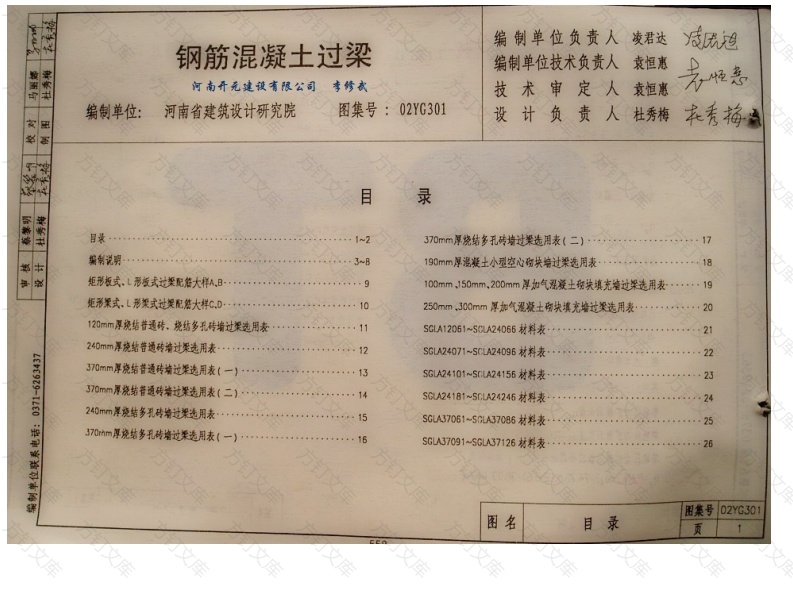 钢筋混凝土过梁
河南开元建设有限公司 李修武
编制单位: 河南省建筑设计研究院 图集号: 02YG301
编制单位负责人 凌君达
编制单位技术负责人 袁恒惠
技术审定人 袁恒惠
设计负责人 杜秀梅
目 录
目录 1~2
编制说明 3~8
矩形板式、L形板式过梁配筋大样A、B 9
矩形梁式、L形梁式过梁配筋大样C、D 10
120mm厚烧结普通砖、烧结多孔砖墙过梁选用表 11
240mm厚烧结普通砖墙过梁选用表 12
370mm厚烧结普通砖墙过梁选用表(一) 13
370mm厚烧结普通砖墙过梁选用表(二) 14
240mm厚烧结多孔砖墙过梁选用表 15
370mm厚烧结多孔砖墙过梁选用表(一) 16
370mm厚烧结多孔砖墙过梁选用表(二) 17
190mm厚混凝土小型空心砌块墙过梁选用表 18
100mm、150mm、200mm厚加气混凝土砌块填充墙过梁选用表 19
250mm、300mm厚加气混凝土砌块填充墙过梁选用表 20
SGLA12061~SGLA24066材料表 21
SGLA24071~SGLA24096材料表 22
SGLA24101~SGLA24156材料表 23
SGLA24181~SGLA24246材料表 24
SGLA37061~SGLA37086材料表 25
SGLA37091~SGLA37126材料表 26
校对 马丽娜
制图 杜秀梅
审核 蔡黎明
设计 杜秀梅
编制单位联系电话: 0371-6263437
图名 目录 图集号 02YG301
页 1
方钉文库